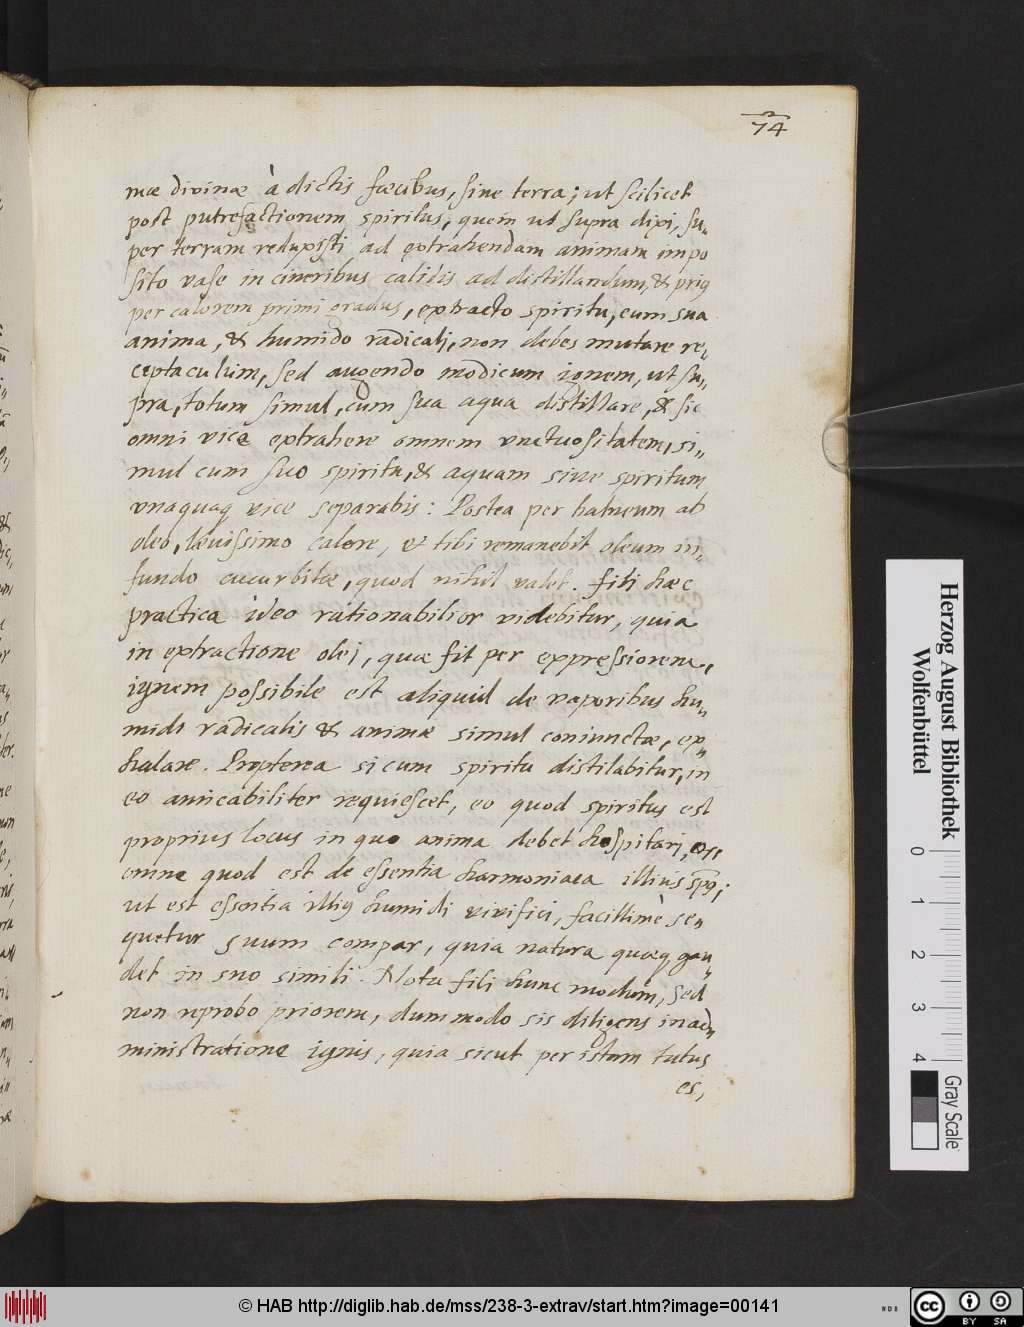 74
mæ divinæ à dictis fæcibus, sine terra; ut scilicet
post putrefactionem spiritus, quem ut supra dixi, su„
per terram reduxisti ad extrahendam animam impo
sito vase in cineribus calidis ad distillandum, & prius
per calorem primi gradus, extracto spiritu, cum sua
anima, & humido radicali, non debes mutare re„
ceptaculum, sed augendo modicum ignem, ut su„
pra, totum simul, cum sua aqua distillare, & sic
omni vice extrahere omnem unctuositatem, si„
mul cum suo spiritu, & aquam sive spiritum
unaquaq vice separabis: Postea per balneum ab
oleo, lævissimo calore, et tibi remanebit oleum in„
fundo cucurbitæ, quod nihil valet. fili hæc
practica ideo rationabilior videbitur, quia
in extractione olei, quæ fit per expressionem,
ignem possibile est aliquid de vaporibus hu„
midi radicalis & animæ simul coniunctæ, ex„
halare. Propterea si cum spiritu distilabitur, in
eo amicabiliter requiescet, eo quod spiritus est
proprius locus in quo anima debet hospitari,
omne quod est de essentia harmoniaca illius spũs;
ut est essentia illius humidi vivifici, facillimè se„
quetur suum compar, quia natura quæq gau„
det in suo simili. Nota fili hunc modum, sed
non reprobo priorem, dummodo sis diligens in ad„
ministratione ignis, quia sicut per istam tutus
es,
Herzog August Bibliothek
Wolfenbüttel
0 1 2 3 4
Gray Scale
© HAB http://diglib.hab.de/mss/238-3-extrav/start.htm?image=00141
cc BY SA